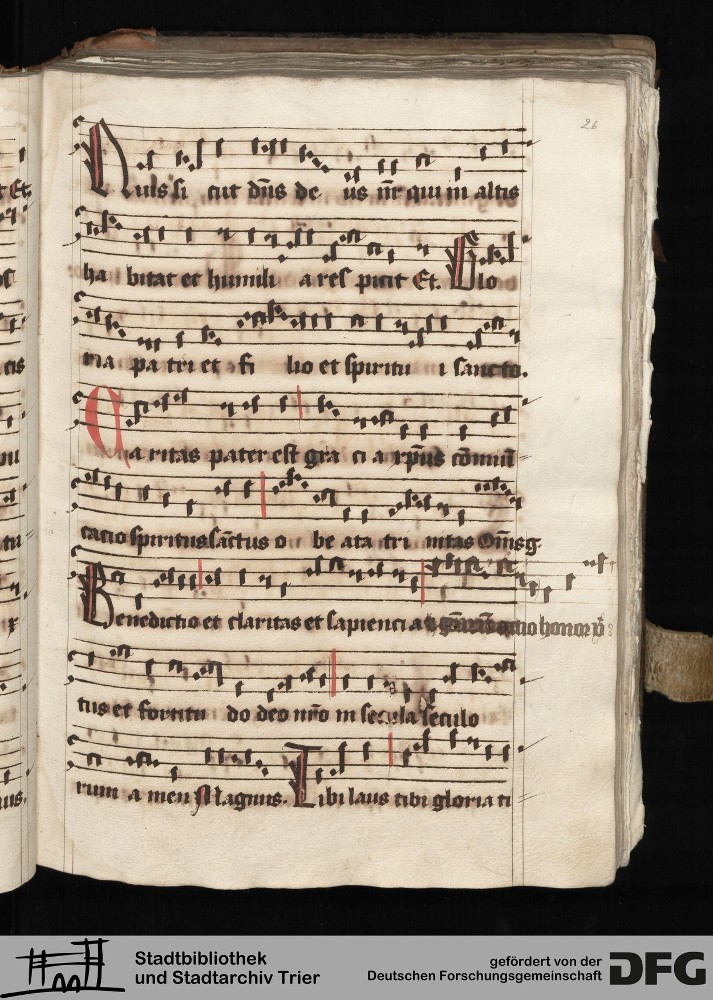 26
Quis si cut dn̄s de us nr̄ qui in altis
ha bitat et humili a res picit Et. Glo
ria pa tri et fi lio et spiritu i sancto.
Ca ritas pater est gra ci a xp̄us cōmuni
cacio spiritus sāctus o be ata tri nitas Om̄s g.
Benedictio et claritas et sapiencia
tus et fortitu do deo nr̄o in secula seculo
rum a men Magnus. Tibi laus tibi gloria ti
Stadtbibliothek
und Stadtarchiv Trier
gefördert von der
Deutschen Forschungsgemeinschaft
DFG